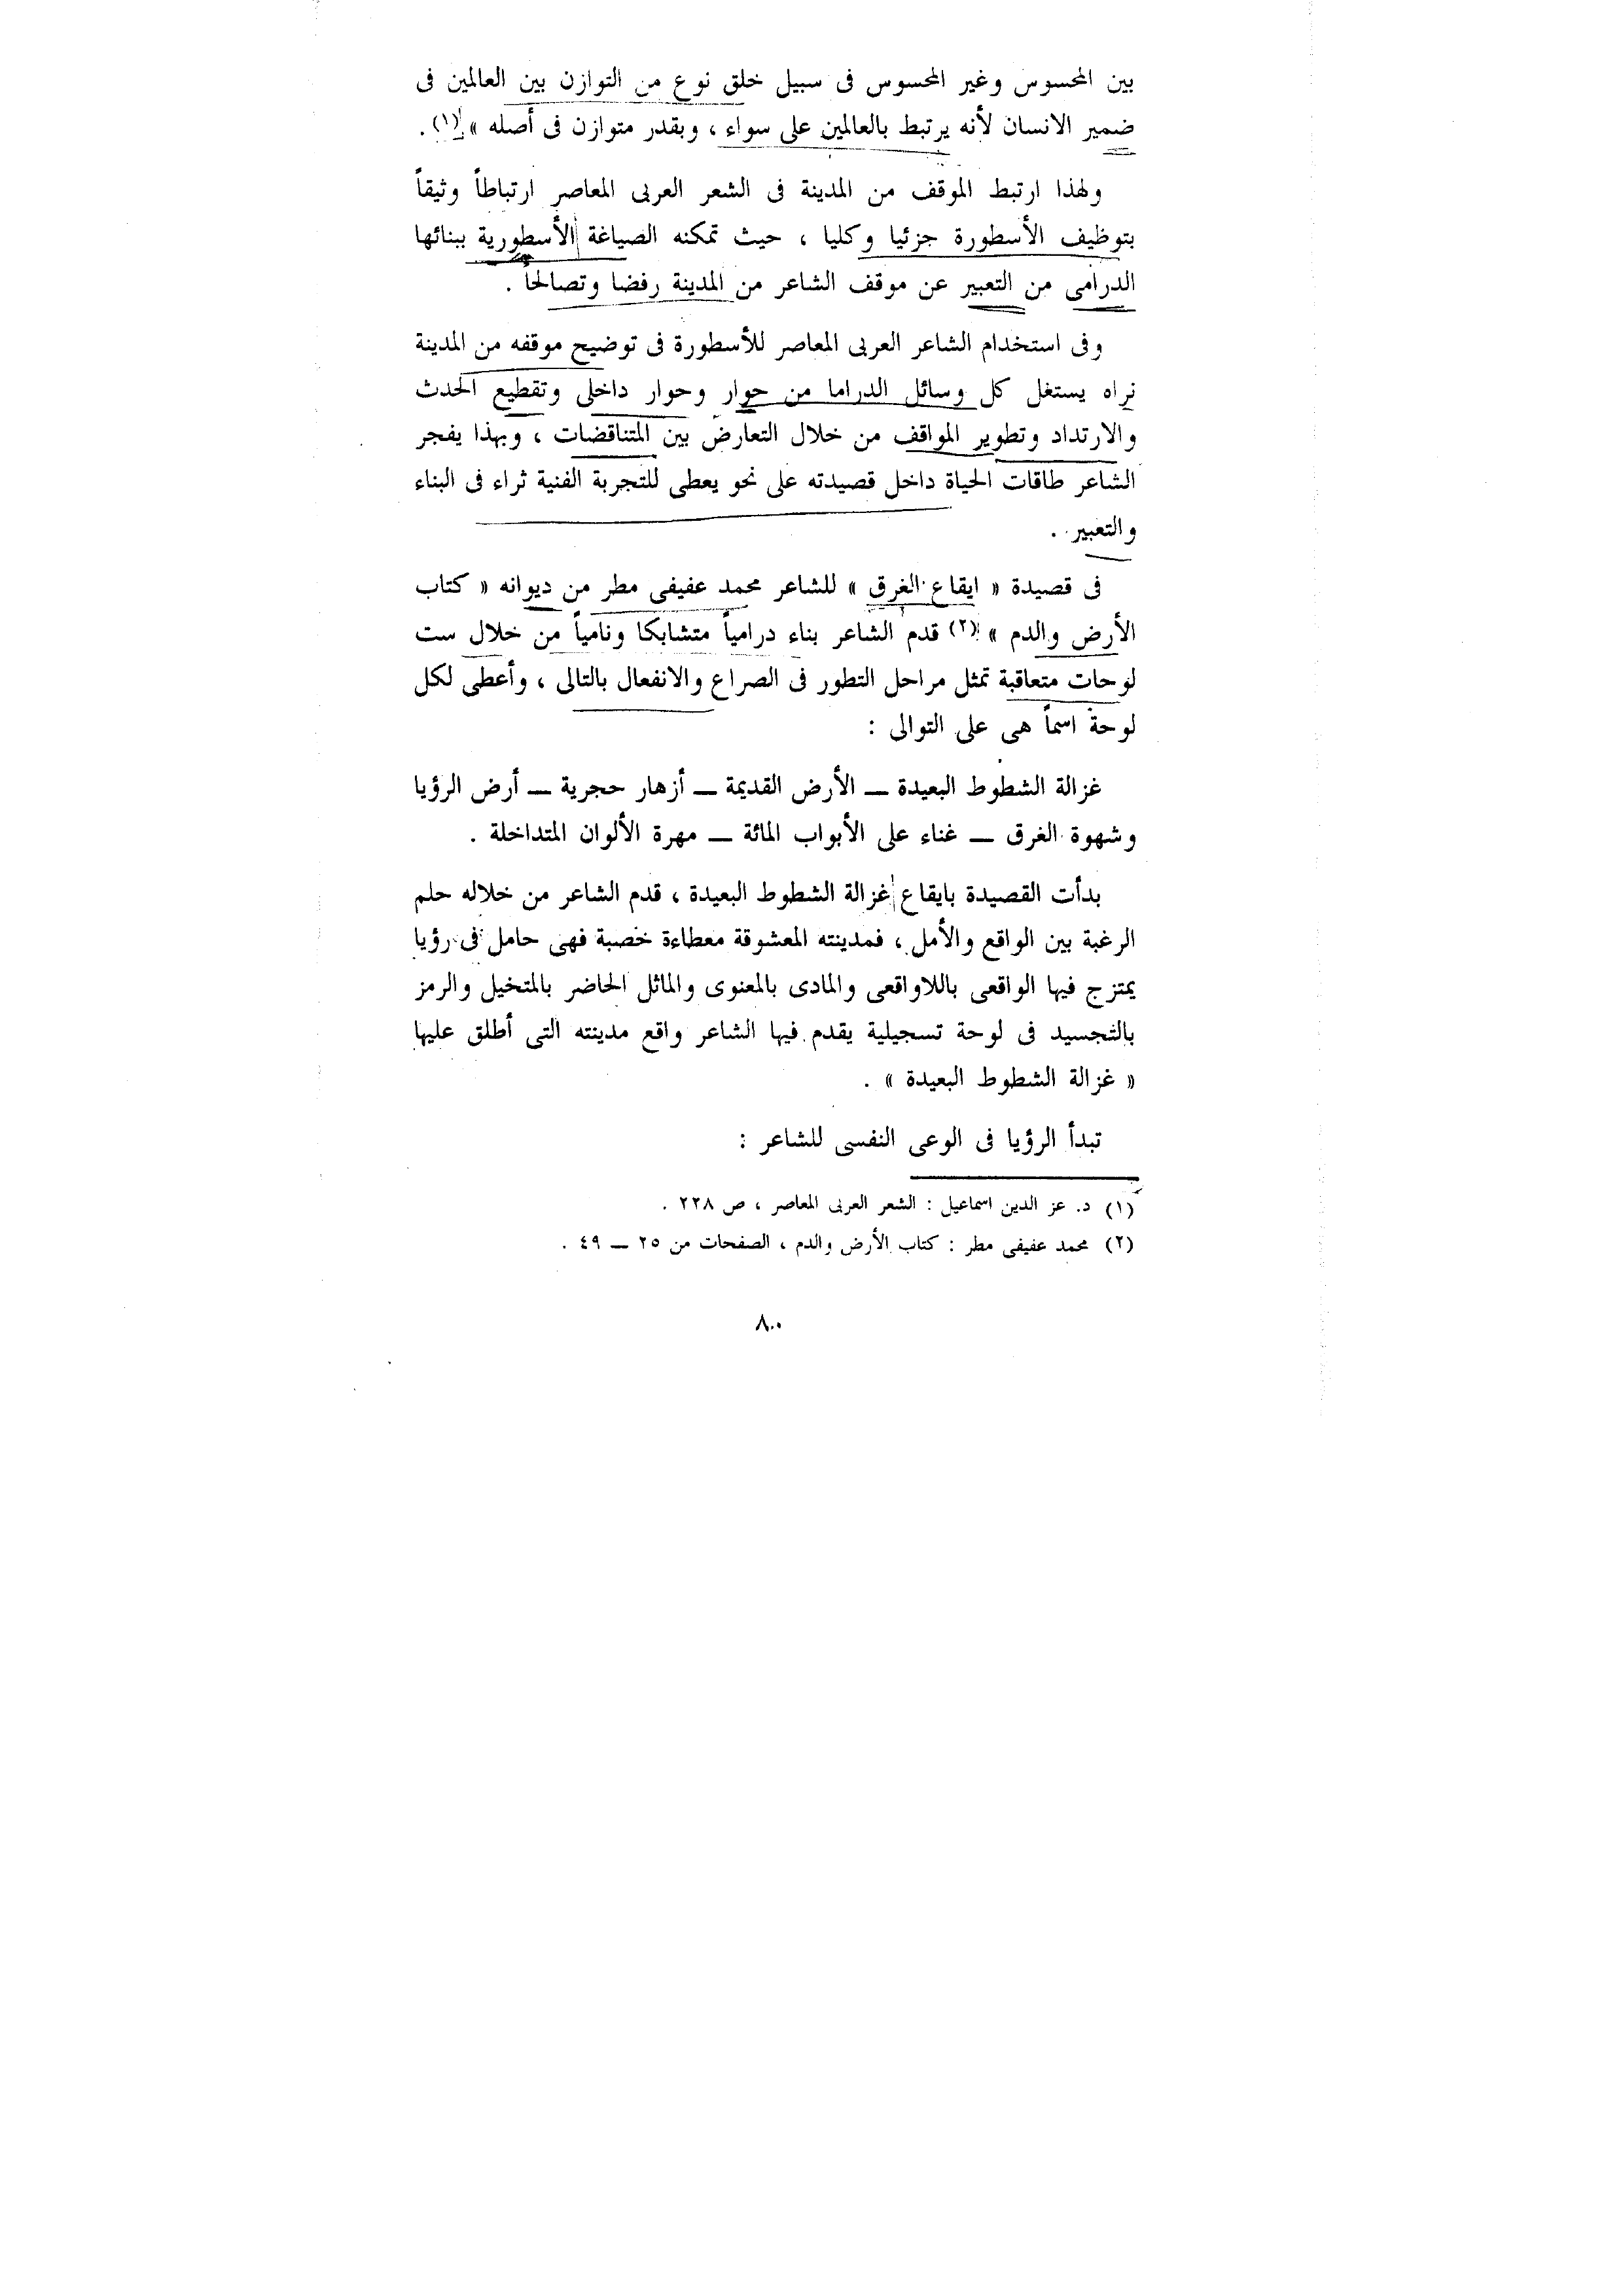 بين المحسوس وغير المحسوس فى سبيل خلق نوع من التوازن بين العالمين فى
ضمير الانسان لأنه يرتبط بالعالمين على سواء ، وبقدر متوازن فى أصله » (١) .
ولهذا ارتبط الموقف من المدينة فى الشعر العربى المعاصر ارتباطاً وثيقاً
بتوظيف الأسطورة جزئيا وكليا ، حيث تمكنه الصياغة الأسطورية ببنائها
الدرامى من التعبير عن موقف الشاعر من المدينة رفضا وتصالحاً .
وفى استخدام الشاعر العربى المعاصر للأسطورة فى توضيح موقفه من المدينة
نراه يستغل كل وسائل الدراما من حوار وحوار داخلى وتقطيع الحدث
والارتداد وتطوير المواقف من خلال التعارض بين المتناقضات ، وبهذا يفجر
الشاعر طاقات الحياة داخل قصيدته على نحو يعطى للتجربة الفنية ثراء فى البناء
والتعبير .
فى قصيدة « ايقاع الغرق » للشاعر محمد عفيفى مطر من ديوانه « كتاب
الأرض والدم » (٢) قدم الشاعر بناء درامياً متشابكا ونامياً من خلال ست
لوحات متعاقبة تمثل مراحل التطور فى الصراع والانفعال بالتالى ، وأعطى لكل
لوحة اسماً هى على التوالى :
غزالة الشطوط البعيدة — الأرض القديمة — أزهار حجرية — أرض الرؤيا
وشهوة الغرق — غناء على الأبواب المائة — مهرة الألوان المتداخلة .
بدأت القصيدة بايقاع غزالة الشطوط البعيدة ، قدم الشاعر من خلاله حلم
الرغبة بين الواقع والأمل ، فمدينته المعشوقة معطاءة خصبة فهى حامل فى رؤيا
يمتزج فيها الواقعى باللاواقعى والمادى بالمعنوى والماثل الحاضر بالمتخيل والرمز
بالتجسيد فى لوحة تسجيلية يقدم فيها الشاعر واقع مدينته التى أطلق عليها
« غزالة الشطوط البعيدة » .
تبدأ الرؤيا فى الوعى النفسى للشاعر :
(١) د. عز الدين اسماعيل : الشعر العربى المعاصر ، ص ٢٢٨ .
(٢) محمد عفيفى مطر : كتاب الأرض والدم ، الصفحات من ٢٥ — ٤٩ .
٨٠